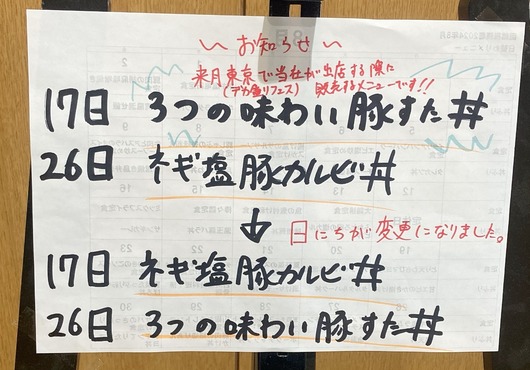 〜お知らせ〜
来月東京で当社が出店する際に
(デカ盛りフェス) 販売するメニューです!!
17日 3つの味わい豚すた丼
26日 ネギ塩豚カルビ丼
↓ 日にちが変更になりました。
17日 ネギ塩豚カルビ丼
26日 3つの味わい豚すた丼